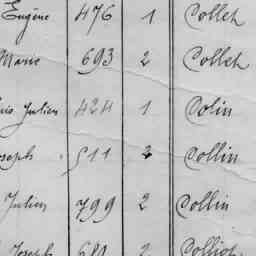 Eugène 476 1 Collet
Marie 693 2 Collet
Julien 424 1 Colin
Joseph 511 2 Collin
Julien 799 2 Collin
Joseph 2